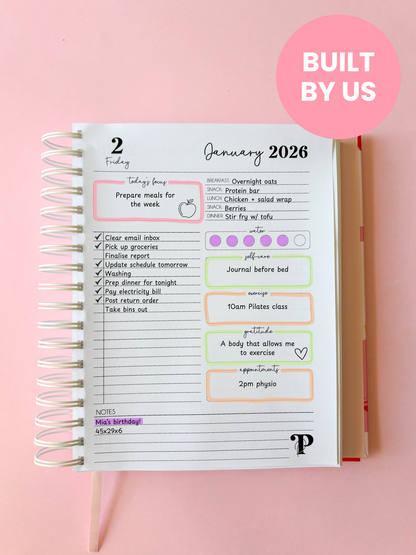 BUILT
BY US
2
Friday
January 2026
today's focus
Prepare meals for
the week
BREAKFAST: Overnight oats
SNACK: Protein bar
LUNCH: Chicken + salad wrap
SNACK: Berries
DINNER: Stir fry w/ tofu
water
Clear email inbox
Pick up groceries
Finalise report
Update schedule tomorrow
Washing
Prep dinner for tonight
Pay electricity bill
Post return order
Take bins out
self-care
Journal before bed
exercise
10am Pilates class
gratitude
A body that allows me
to exercise
appointments
2pm physio
NOTES
Mia's birthday!
45x29x6
P